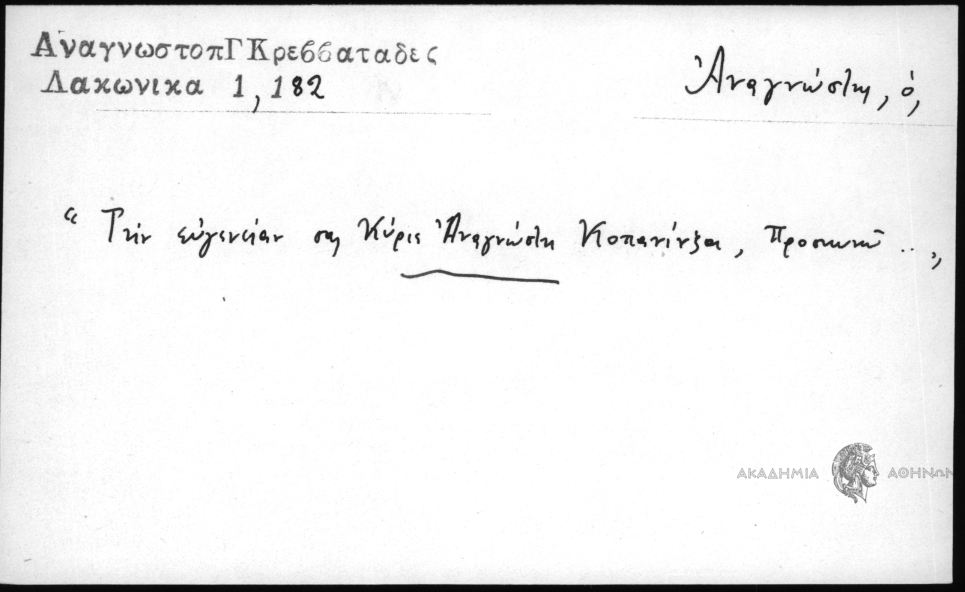 ΑναγνωστοπΓΚρεββαταδες
Λακωνικα 1,182
Ἀναγνώστης, ὁ,
“ Τὴν εὐγενείαν σας Κύριε Ἀναγνώστη, προσκυνῶ .. „
ΑΚΑΔΗΜΙΑ ΑΘΗΝΩΝ